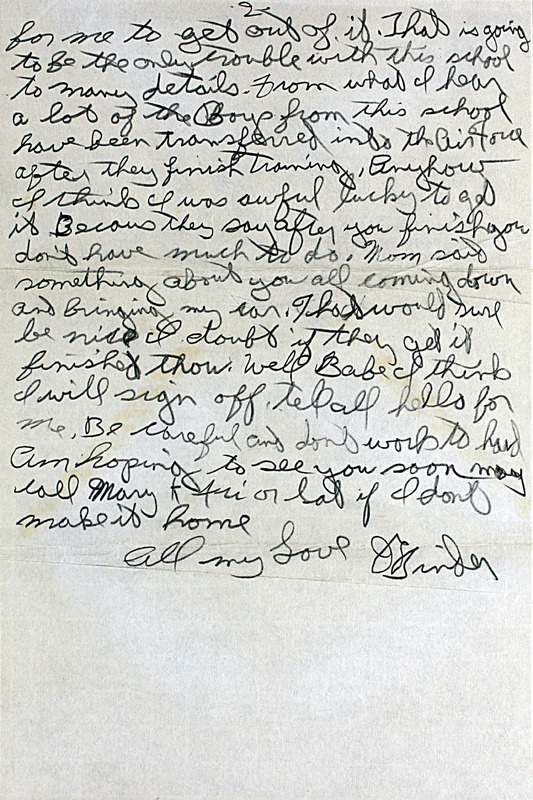 2
for me to get out of it. That is going
to be the only trouble with this school
to many details. From what I hear
a lot of the Boys from this school
have been transferred into the Airforce
after they finish training. Anyhow
I think I was awful lucky to get
it Becaus they say after you finish you
don't have much to do. Mom said
something about you all coming down
and bringing my car. That would sure
be nice I doubt if they get it
finished thou. Well Babe I think
I will sign off. tell all hello for
me. Be careful and dont work to hard
Am hoping to see you soon may
call Mary + Fri or Sat if I dont
make it home
All my Love